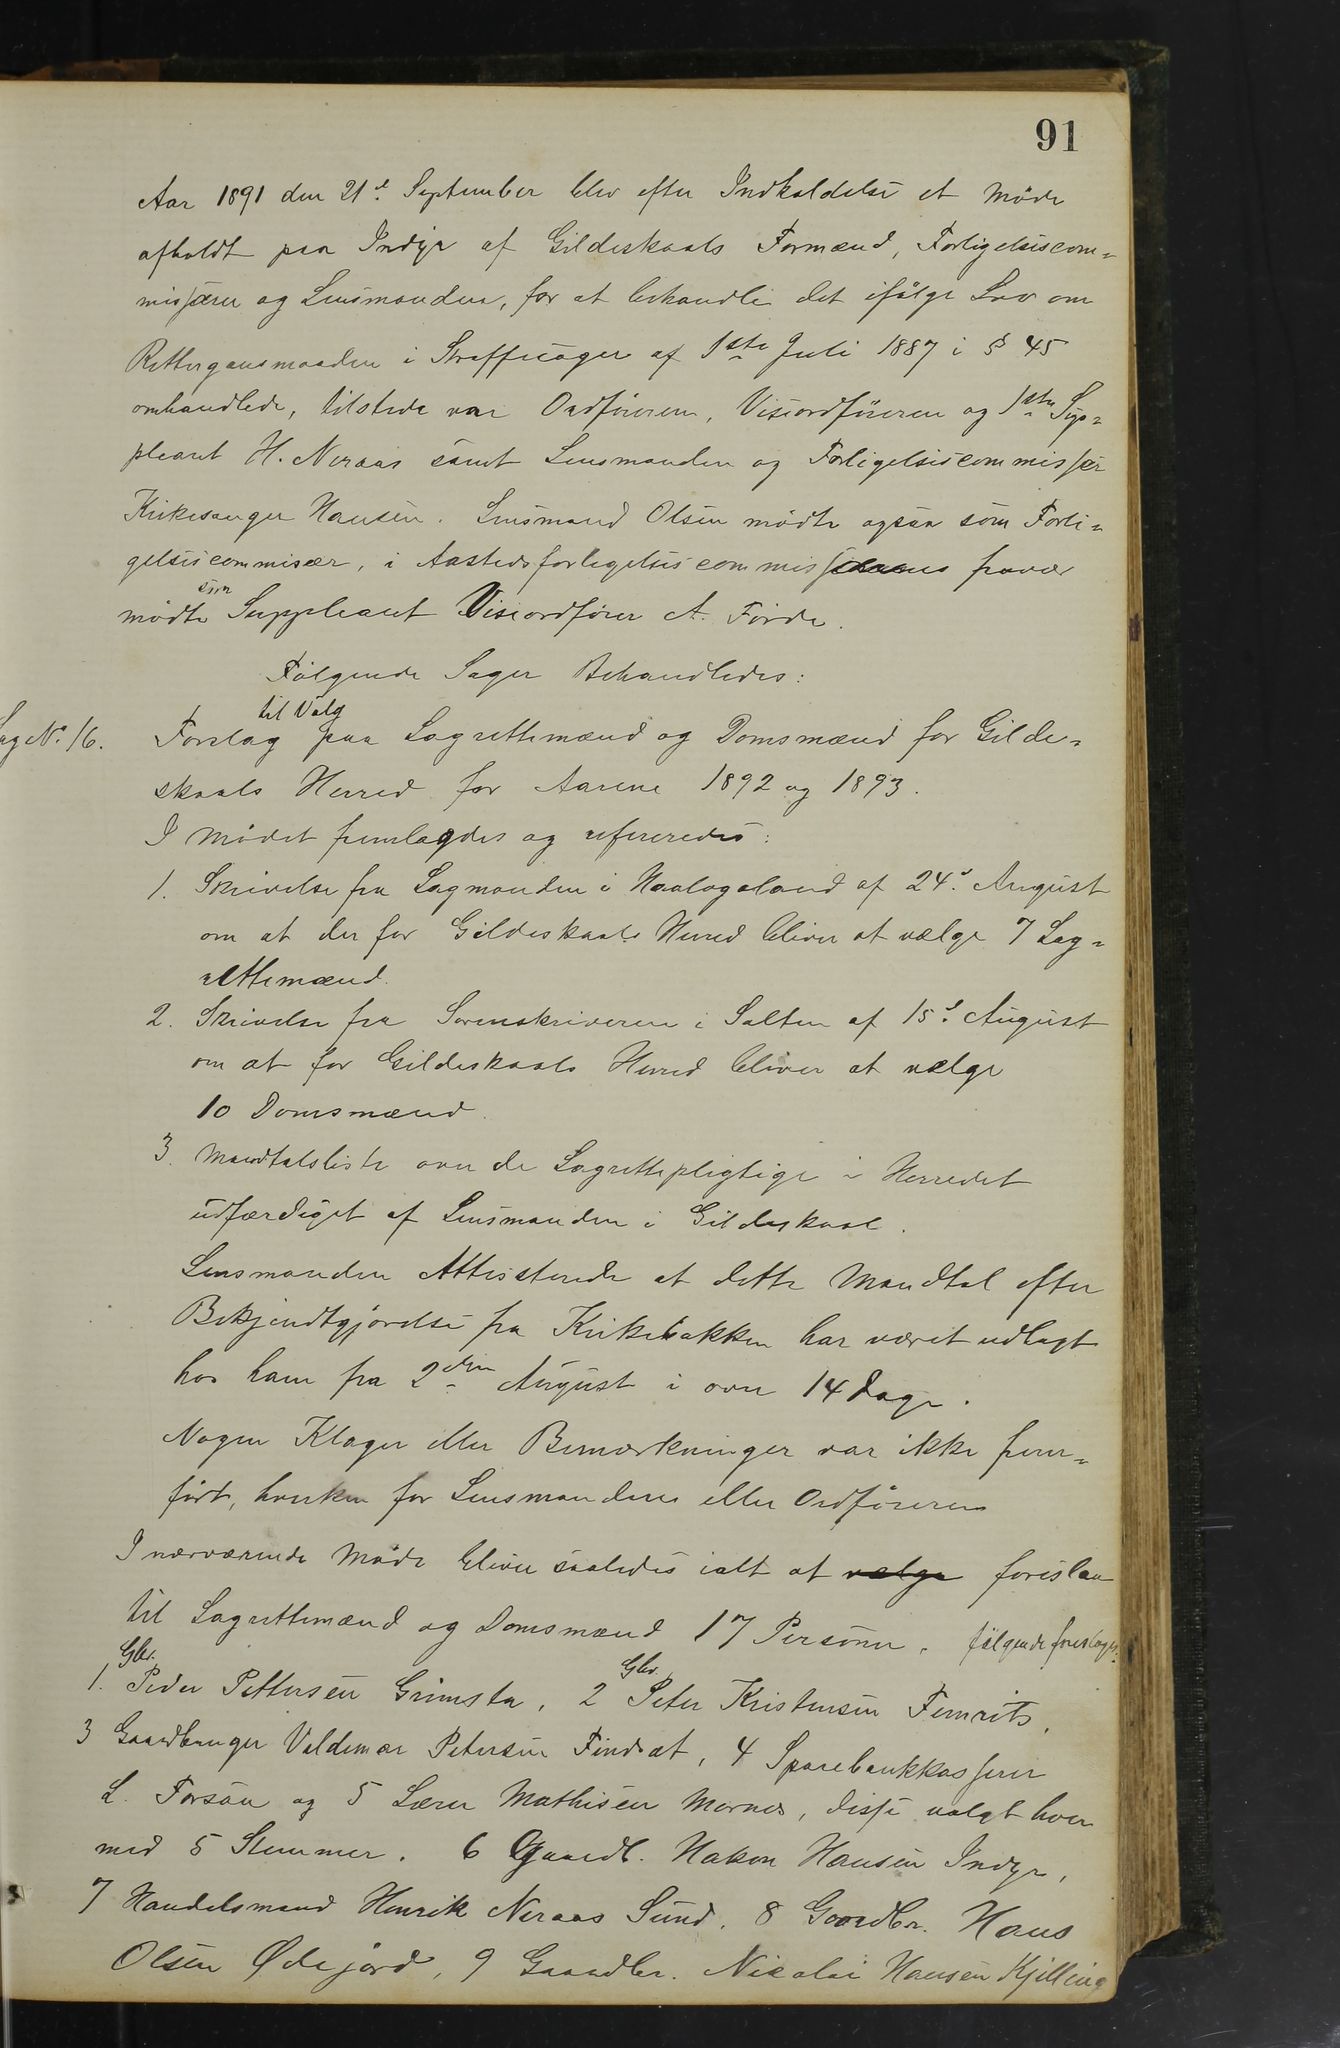 91
Aar 1891 den 21de September blev efter Indkaldelse et Møde
afholdt paa Indyr af Gildeskaals Formænd, Forligelsescom-
missærer og Lensmanden, for at behandle det ifølge Lov om
Rettergangsmaaden i Straffesager af 1ste Juli 1887 i § 45
omhandlede, tilstede var Ordføreren, Viseordføreren og 1ste Sup-
pleant H. Neraas samt Lensmanden og Forligelsescommissær
Kirkesanger Hansen. Lensmand Olsen mødte ogsaa som Forli-
gelsescommisær, i Aastedsforligelsescommissærens fravær
mødte som Suppleant Viseordfører A. Førde.
Følgende Sager Behandledes:
Sag No. 16. Forslag til Valg paa Lagrettemænd og Domsmænd for Gilde-
skaals Herred for Aarene 1892 og 1893.
I Mødet fremlagdes og refereredes:
1. Skrivelse fra Lagmanden i Haalogaland af 24de August
om at der for Gildeskaals Herred bliver at vælge 7 Lag-
rettemænd.
2. Skrivelse fra Sorenskriveren i Salten af 15de August
om at for Gildeskaals Herred bliver at vælge
10 Domsmænd.
3. Mandtalsliste over de Lagrettepligtige i Herredet
udfærdiget af Lensmanden i Gildeskaal.
Lensmanden Attesterede at dette Mandtal efter
Bekjendtgjørelse fra Kirkebakken har været udlagt
hos ham fra 2den August i over 14 Dage.
Nogen Klager eller Bemærkninger var ikke frem-
ført, hverken for Lensmanden eller Ordføreren
I nærværende Møde bliver saaledes ialt at vælge foreslaa
til Lagrettemænd og Domsmænd 17 Personer. følgende foreslages:
1. Gbr. Peder Pettersen Grimsta, 2 Gbr. Peter Kristensen Femris,
3 Gaardbruger Valdemar Petersen Findset, 4 Sparebankkasserer
L. Forsaa og 5 Lærer Mathisen Mornes, disse valgt hver
med 5 Stemmer. 6 Gaardb. Hakon Hansen Indyr,
7 Handelsmand Henrik Neraas Sund, 8 Gaardbr. Hans
Olsen Ødejord, 9 Gaardbr. Nicolai Hansen Kjelling